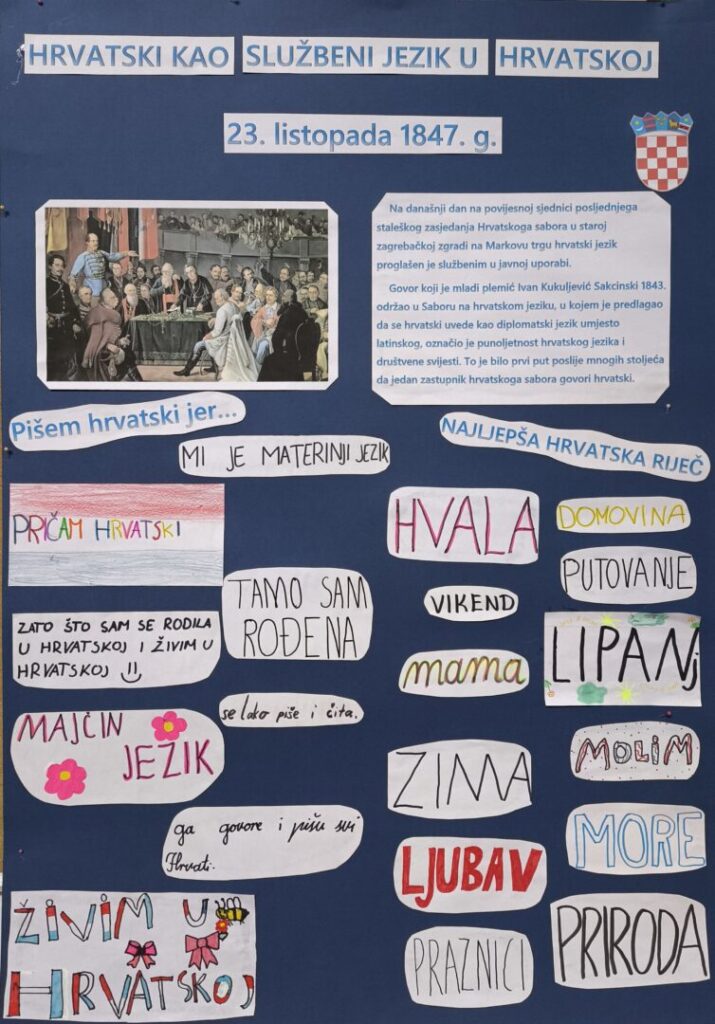 HRVATSKI KAO SLUŽBENI JEZIK U HRVATSKOJ
23. listopada 1847. g.
Na današnji dan na povijesnoj sjednici posljednjega
staleškog zasjedanja Hrvatskoga sabora u staroj
zagrebačkoj zgradi na Markovu trgu hrvatski jezik
proglašen je službenim u javnoj uporabi.
Govor koji je mladi plemić Ivan Kukuljević Sakcinski 1843.
održao u Saboru na hrvatskom jeziku, u kojem je predlagao
da se hrvatski uvede kao diplomatski jezik umjesto
latinskog, označio je punoljetnost hrvatskog jezika i
društvene svijesti. To je bilo prvi put poslije mnogih stoljeća
da jedan zastupnik hrvatskoga sabora govori hrvatski.
Pišem hrvatski jer...
MI JE MATERINJI JEZIK
PRIČAM HRVATSKI
TAMO SAM
ROĐENA
ZATO ŠTO SAM SE RODILA
U HRVATSKOJ I ŽIVIM U
HRVATSKOJ
se lako piše i čita.
MAJČIN
JEZIK
ga govore i pišu svi
Hrvati.
ŽIVIM U
HRVATSKOJ
NAJLJEPŠA HRVATSKA RIJEČ
HVALA
DOMOVINA
PUTOVANJE
VIKEND
LIPANj
mama
MOLIM
ZIMA
MORE
LJUBAV
PRIRODA
PRAZNICI